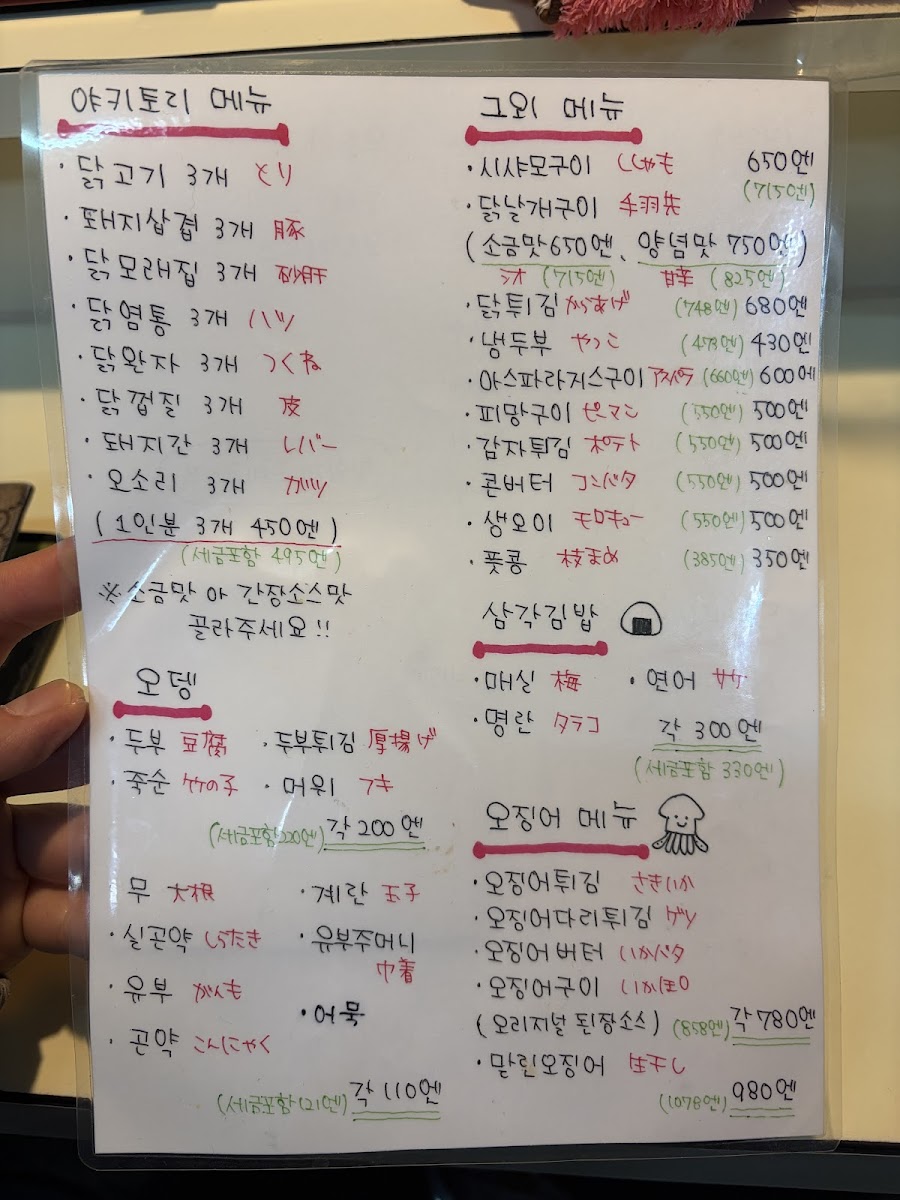 야키토리 메뉴
· 닭고기 3개 とり
· 돼지삼겹 3개 豚
· 닭모래집 3개 砂肝
· 닭염통 3개 ハツ
· 닭완자 3개 つくね
· 닭껍질 3개 皮
· 돼지간 3개 レバー
· 오소리 3개 ガツ
(1인분 3개 450엔)
(세금포함 495엔)
※소금맛 아 간장소스맛
골라주세요!!
오뎅
· 두부 豆腐 · 두부튀김 厚揚げ
· 죽순 竹の子 · 머위 フキ
(세금포함 220엔) 각 200엔
무 大根 · 계란 玉子
· 실곤약 しらたき · 유부주머니
巾着
· 유부 がんも
· 어묵
· 곤약 こんにゃく
(세금포함 121엔) 각 110엔
그외 메뉴
· 시샤모구이 ししゃも 650엔
(715엔)
· 닭날개구이 手羽先
(소금맛 650엔、양념맛 750엔)
シオ (715엔) 甘辛 (825엔)
· 닭튀김 からあげ (748엔) 680엔
· 냉두부 やっこ (473엔) 430엔
· 아스파라거스구이 アスパラ (660엔) 600엔
· 피망구이 ピーマン (550엔) 500엔
· 감자튀김 ポテト (550엔) 500엔
· 콘버터 コーンバタ (550엔) 500엔
· 생오이 モロキュー (550엔) 500엔
· 풋콩 枝まめ (385엔) 350엔
삼각김밥
· 매실 梅 · 연어 サケ
· 명란 タラコ 각 300엔
(세금포함 330엔)
오징어 메뉴
· 오징어튀김 さきいか
· 오징어다리튀김 ゲソ
· 오징어버터 いかバタ
· 오징어구이 いかぽり
(오리지널 된장소스) (858엔) 각 780엔
· 말린오징어 生干し
(1078엔) 980엔